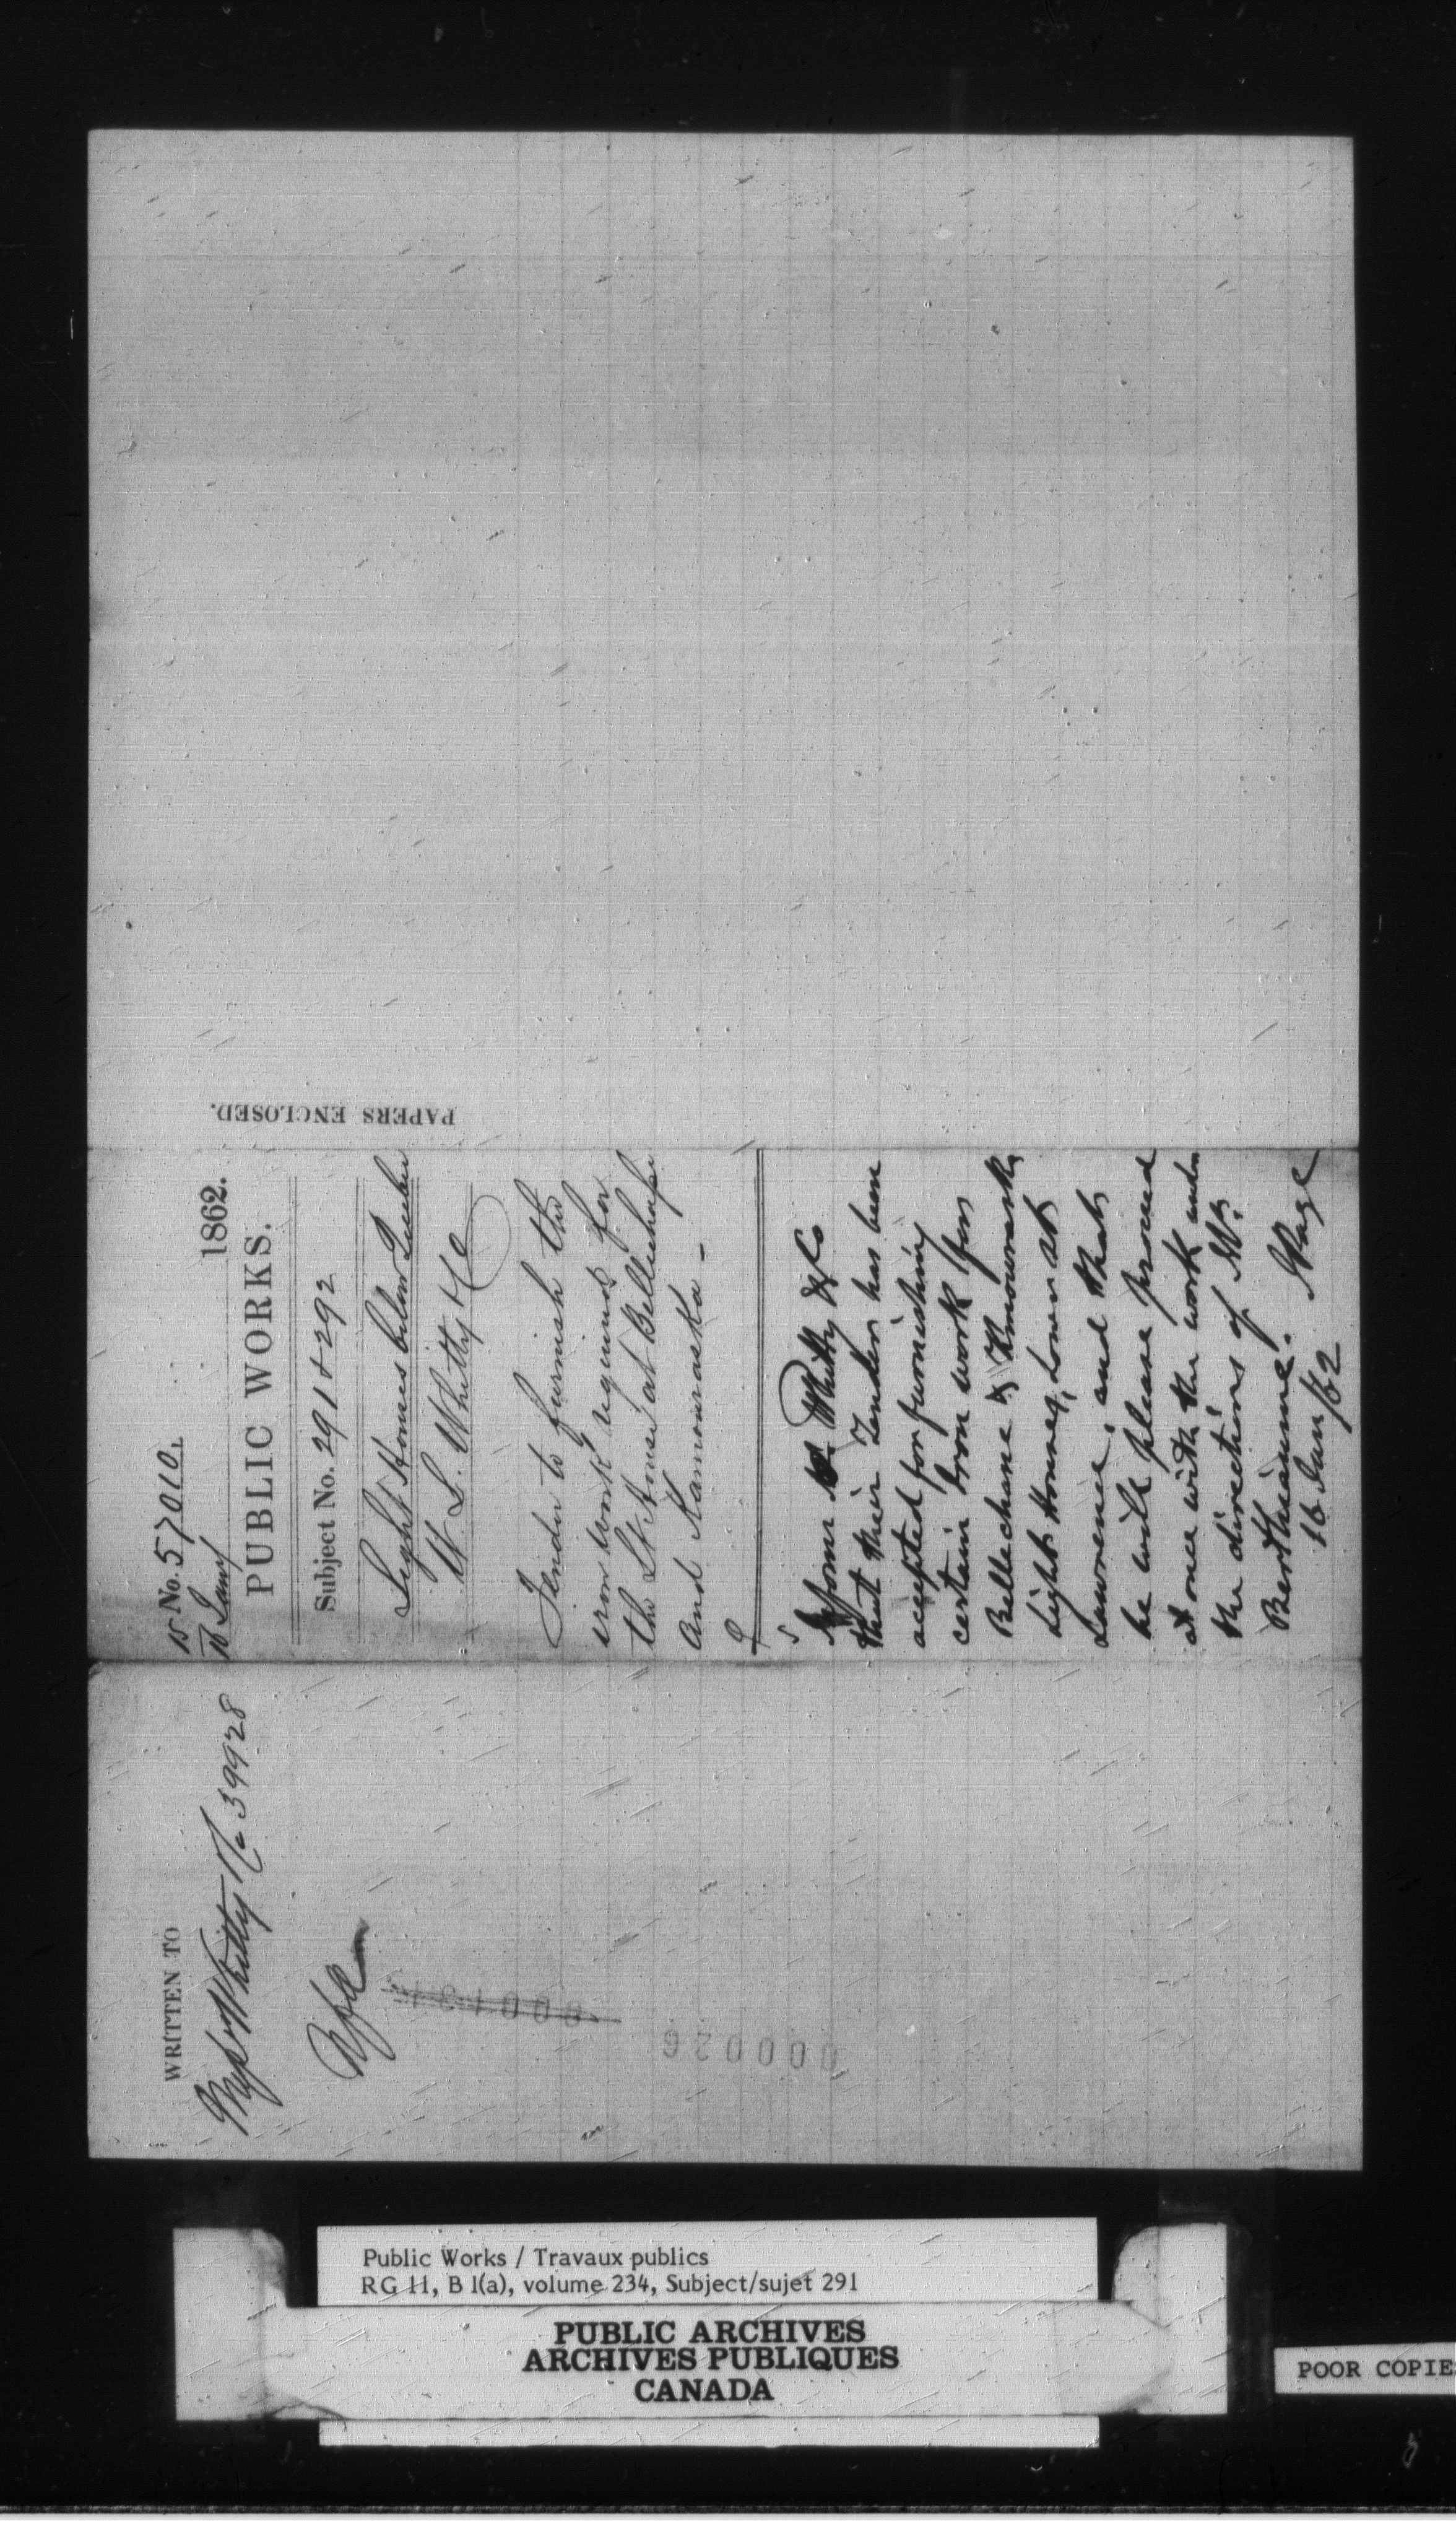 PAPERS ENCLOSED.
15 No. 57010.
16 Jany 1862.
PUBLIC WORKS.
Subject No. 291 & 292
Light Houses below Quebec
W. S. Whitty & Co
Tender to furnish the
iron work required for
the Lt House at Bellechasse
and Kamouraska -
Inform Whitty & Co
that their Tender has been
accepted for furnishing
certain iron work for
Bellechasse & Kamouraska
Light Houses, Lower St
Lawrence, and that
he will please proceed
at once with the work under
the directions of Mr
Berthiaume. Page
16 Jan/62
WRITTEN TO
Whitty & Co 39928
000131
000026
Public Works / Travaux publics
RG 11, B 1(a), volume 234, Subject/sujet 291
PUBLIC ARCHIVES
ARCHIVES PUBLIQUES
CANADA
POOR COPIE